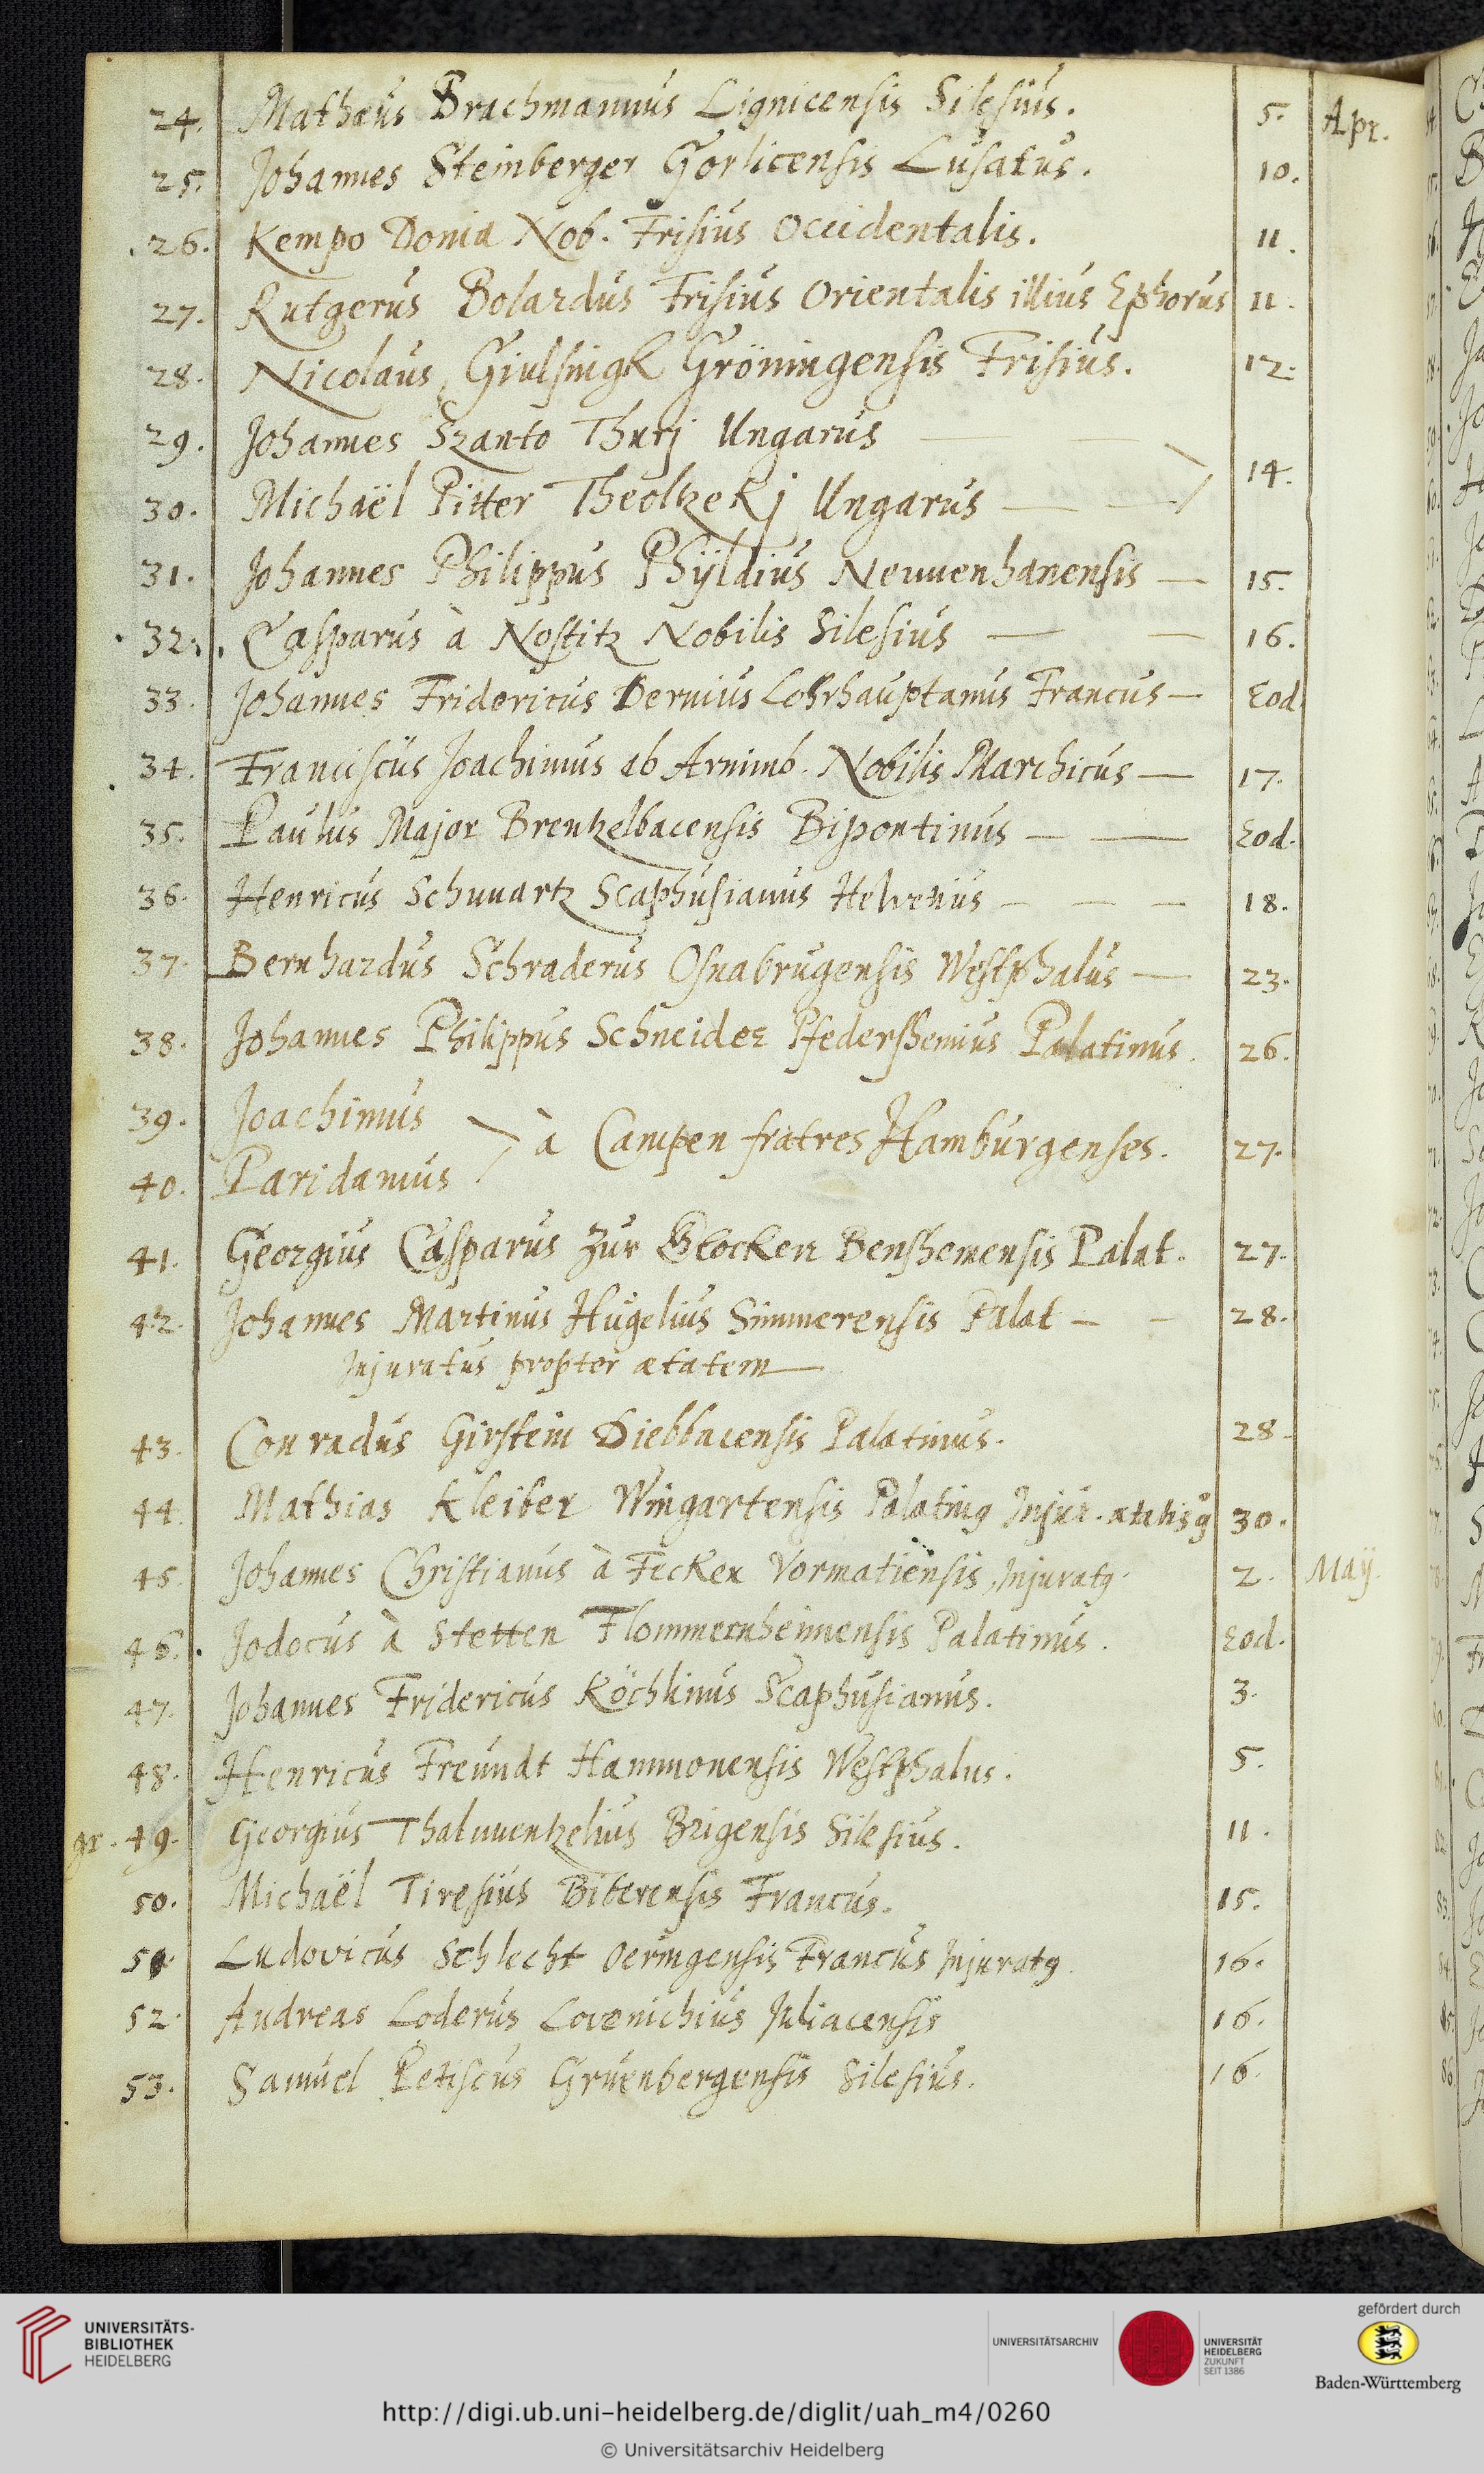 24. Mathæus Brachmannus Lignicensis Silesius. 5. Apr.
25. Johannes Steinberger Gorlicensis Lusatus. 10.
26. Kempo Donia Nob. Frisius Occidentalis. 11.
27. Rutgerus Bolardus Frisius Orientalis illius Ephorus 11.
28. Nicolaus Giulsingk Gröningensis Frisius. 12.
29. Johannes Szanto Thurj Ungarus
14.
30. Michaël Pitter Theoltzekj Ungarus
31. Johannes Philippus Phÿldius Neuuenhanensis 15.
32. Casparus à Nostitz Nobilis Silesius 16.
33. Johannes Fridericus Bernius Lohrhauptanus Francus Eod.
34. Franciscus Joachimus ab Arnimb. Nobilis Marchicus 17.
35. Paulus Major Brentzelbacensis Bipontinus Eod.
36. Henricus Schuuartz Scaphusianus Helvetius 18.
37. Bernhardus Schraderus Osnabrugensis Westphalus 23.
38. Johannes Philippus Schneider Pfedershemius Palatinus. 26.
39. Joachimus
à Campen fratres Hamburgenses. 27.
40. Paridamus
41. Georgius Casparus zur Glocken Benshemensis Palat. 27.
42. Johannes Martinus Hugelius Simmerensis Palat 28.
Injuratus propter ætatem
43. Conradus Girstein Diebbacensis Palatinus. 28.
44. Mathias Kleiber Wingartensis Palatin9 Injur. ætatis g 30.
45. Johannes Christianus à Fecken Vormatiensis, Injurat9. 2. Maÿ.
46. Jodocus à Stetten Flommernheimensis Palatinus. Eod.
47. Johannes Fridericus Köchlinus Scaphusianus. 3.
48. Henricus Freundt Hammonensis Westphalus. 5.
gr. 49. Georgius Thaluuentzelius Brigensis Silesius. 11.
50. Michaël Tiresius Biberensis Francus. 15.
51. Ludovicus Schlecht Oeringensis Francus Injurat9. 16.
52. Andreas Loderus Lovenichius Juliacensis 16.
53. Samuel Petiscus Gruenbergensis Silesius. 16.
UNIVERSITÄTS-
BIBLIOTHEK
HEIDELBERG
UNIVERSITÄTSARCHIV
UNIVERSITÄT
HEIDELBERG
ZUKUNFT
SEIT 1386
gefördert durch
Baden-Württemberg
http://digi.ub.uni-heidelberg.de/diglit/uah_m4/0260
© Universitätsarchiv Heidelberg